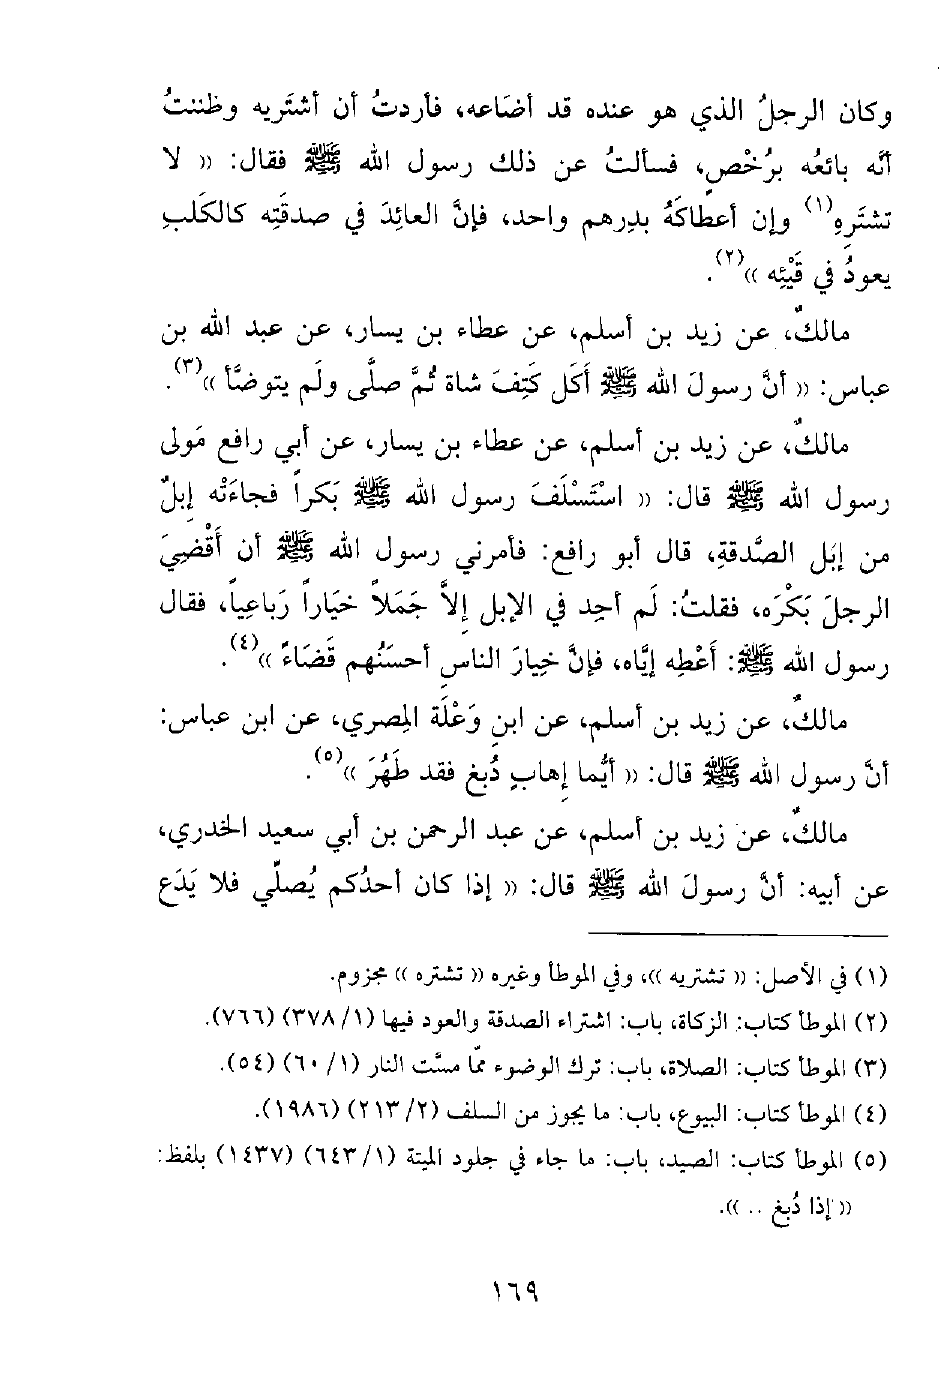 وكان الرجلُ الذي هو عنده قد أضَاعه، فأردتُ أن أشتَريه وظننتُ
أنَّه بائعُه برُخْصٍ، فسألتُ عن ذلك رسول الله ﷺ فقال: « لا
تشتَرِهِ(١) وإن أعطاكَهُ بدِرهم واحد، فإنَّ العائِدَ في صدقَتِه كالكَلبِ
يعودُ في قَيْئِه »(٢).
مالكٌ، عن زيد بن أسلم، عن عطاء بن يسار، عن عبد الله بن
عباس: « أنَّ رسولَ الله ﷺ أَكَل كَتِفَ شاة ثُمَّ صلَّى ولَم يتوضَّأ »(٣).
مالكٌ، عن زيد بن أسلم، عن عطاء بن يسار، عن أبي رافع مَولى
رسول الله ﷺ قال: « استَسْلَفَ رسول الله ﷺ بَكراً فجاءَتْه إبِلٌ
من إبَل الصَّدقةِ، قال أبو رافع: فأمرني رسول الله ﷺ أن أَقْضِيَ
الرجلَ بَكْرَه، فقلتُ: لَم أجِد في الإبل إلاَّ جَمَلاً خيَاراً رَباعِياً، فقال
رسول الله ﷺ: أَعْطِه إيَّاه، فإنَّ خِيارَ الناسِ أحسَنُهم قَضَاءً »(٤).
مالكٌ، عن زيد بن أسلم، عن ابنِ وَعْلَة المِصري، عن ابن عباس:
أنَّ رسول الله ﷺ قال: « أيُّما إهابٍ دُبِغ فقد طَهُرَ »(٥).
مالكٌ، عن زيد بن أسلم، عن عبد الرحمن بن أبي سعيد الخدري،
عن أبيه: أنَّ رسولَ الله ﷺ قال: « إذا كان أحدُكم يُصلِّي فلا يَدَع
(١) في الأصل: « تشتريه »، وفي الموطأ وغيره « تشتره » مجزوم.
(٢) الموطأ كتاب: الزكاة، باب: اشتراء الصدقة والعود فيها (١/ ٣٧٨) (٧٦٦).
(٣) الموطأ كتاب: الصلاة، باب: ترك الوضوء ممّا مسَّت النار (١/ ٦٠) (٥٤).
(٤) الموطأ كتاب: البيوع، باب: ما يجوز من السلف (٢/ ٢١٣) (١٩٨٦).
(٥) الموطأ كتاب: الصيد، باب: ما جاء في جلود الميتة (١/ ٦٤٣) (١٤٣٧) بلفظ:
« إذا دُبغ .. ».
١٦٩